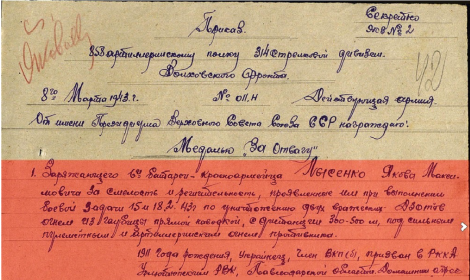 Секретно
Экз № 2
Приказ
858 артиллерийскому полку 314 стрелковой дивизии
Волховского Фронта.
8го Марта 1943 г. № 011/Н Действующая армия
От имени Президиума Верховного Совета Союза ССР награждаю:
Медалью "За Отвагу"
1. Заряжающего 6й батареи - красноармейца ЛЫСЕНКО Якова Макси-
мовича за смелость и решительность, проявленные им при выполнении
боевой задачи 15 и 18.2.43г. по уничтожению двух вражеских ДЗОТов
огнем из гаубицы прямой наводкой, с дистанции 300-500 м, под сильным
пулеметным и артиллерийским огнем противника.
1911 года рождения, Украинец, член ВКП(б), призван в РККА
РВК, Павлодарской области